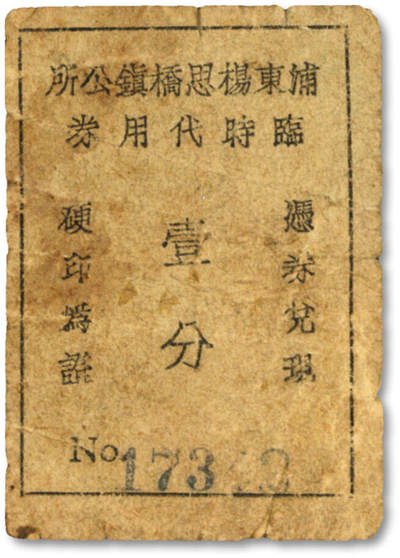 浦東楊思橋鎮公所
臨時代用券
憑券兌現
壹分
硬印為證
No.